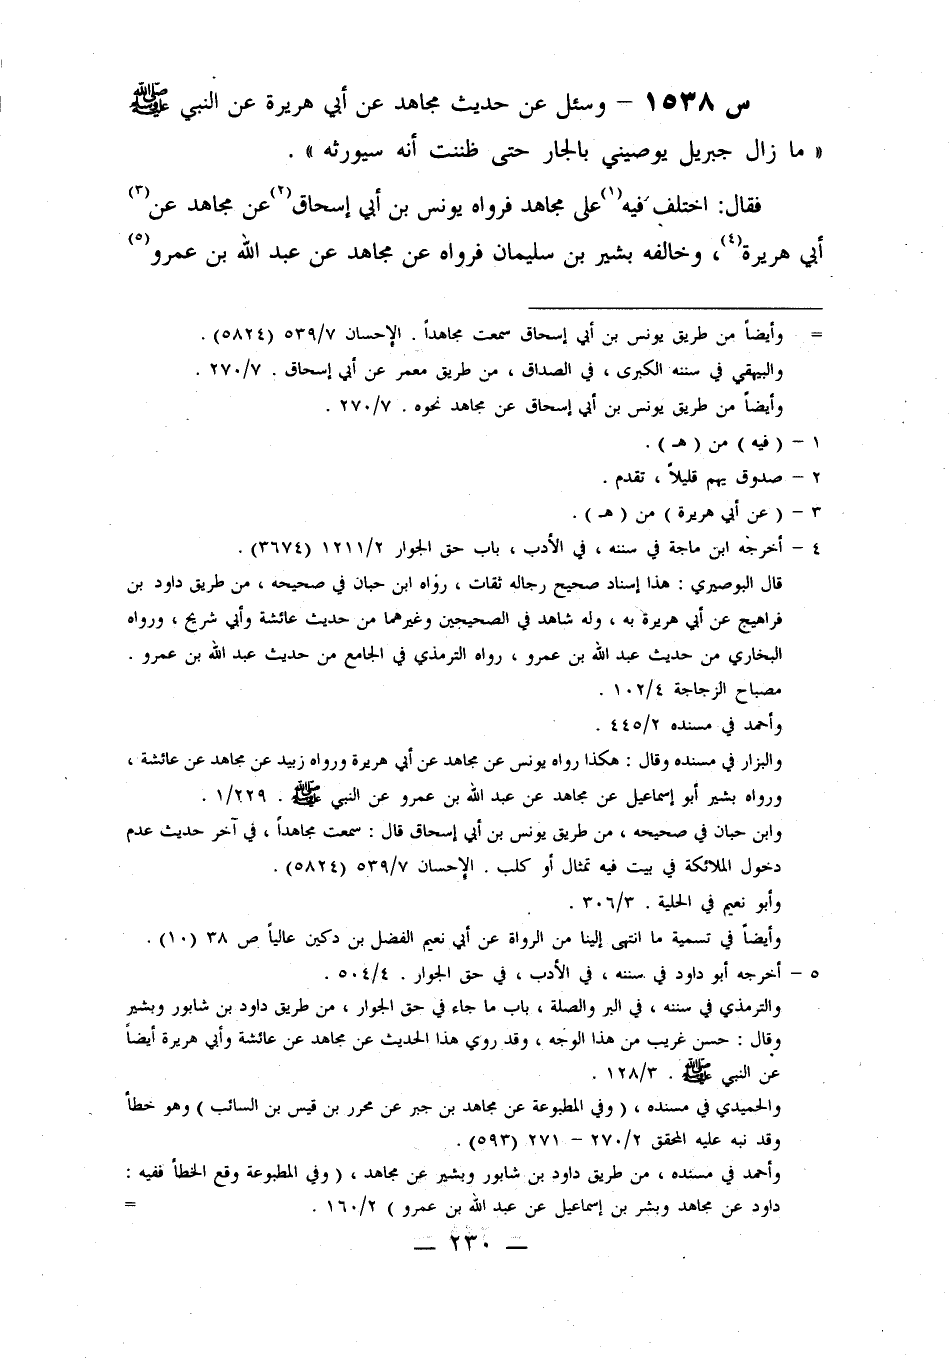 س ١٥٣٨ – وسئل عن حديث مجاهد عن أبي هريرة عن النبي ﷺ
« ما زال جبريل يوصيني بالجار حتى ظننت أنه سيورثه » .
فقال: اختلف فيه(١) على مجاهد فرواه يونس بن أبي إسحاق(٢) عن مجاهد عن(٣)
أبي هريرة(٤)، وخالفه بشير بن سليمان فرواه عن مجاهد عن عبد الله بن عمرو(٥)
= وأيضاً من طريق يونس بن أبي إسحاق سمعت مجاهداً . الإحسان ٥٣٩/٧ (٥٨٢٤) .
والبيهقي في سننه الكبرى ، في الصداق ، من طريق معمر عن أبي إسحاق . ٢٧٠/٧ .
وأيضاً من طريق يونس بن أبي إسحاق عن مجاهد نحوه . ٢٧٠/٧ .
١ – ( فيه ) من ( هـ ) .
٢ – صدوق يهم قليلاً ، تقدم .
٣ – ( عن أبي هريرة ) من ( هـ ) .
٤ – أخرجه ابن ماجة في سننه ، في الأدب ، باب حق الجوار ١٢١١/٢ (٣٦٧٤) .
قال البوصيري : هذا إسناد صحيح رجاله ثقات ، رواه ابن حبان في صحيحه ، من طريق داود بن
فراهيج عن أبي هريرة به ، وله شاهد في الصحيحين وغيرهما من حديث عائشة وأبي شريح ، ورواه
البخاري من حديث عبد الله بن عمرو ، رواه الترمذي في الجامع من حديث عبد الله بن عمرو .
مصباح الزجاجة ١٠٢/٤ .
وأحمد في مسنده ٤٤٥/٢ .
والبزار في مسنده وقال : هكذا رواه يونس عن مجاهد عن أبي هريرة ورواه زبيد عن مجاهد عن عائشة ،
ورواه بشير أبو إسماعيل عن مجاهد عن عبد الله بن عمرو عن النبي ﷺ . ١/٢٢٩ .
وابن حبان في صحيحه ، من طريق يونس بن أبي إسحاق قال : سمعت مجاهداً ، في آخر حديث عدم
دخول الملائكة في بيت فيه تمثال أو كلب . الإحسان ٥٣٩/٧ (٥٨٢٤) .
وأبو نعيم في الحلية . ٣٠٦/٣ .
وأيضاً في تسمية ما انتهى إلينا من الرواة عن أبي نعيم الفضل بن دكين عالياً ص ٣٨ (١٠) .
٥ – أخرجه أبو داود في سننه ، في الأدب ، في حق الجوار . ٥٠٤/٤ .
والترمذي في سننه ، في البر والصلة ، باب ما جاء في حق الجوار ، من طريق داود بن شابور وبشير
وقال : حسن غريب من هذا الوجه ، وقد روي هذا الحديث عن مجاهد عن عائشة وأبي هريرة أيضاً
عن النبي ﷺ . ١٢٨/٣ .
والحميدي في مسنده ، ( وفي المطبوعة عن مجاهد بن جبر عن محرر بن قيس بن السائب ) وهو خطأ
وقد نبه عليه المحقق ٢٧٠/٢ – ٢٧١ (٥٩٣) .
وأحمد في مسنده ، من طريق داود بن شابور وبشير عن مجاهد ، ( وفي المطبوعة وقع الخطأ ففيه :
داود عن مجاهد وبشر بن إسماعيل عن عبد الله بن عمرو ) ١٦٠/٢ . =
— ٢٣٠ —